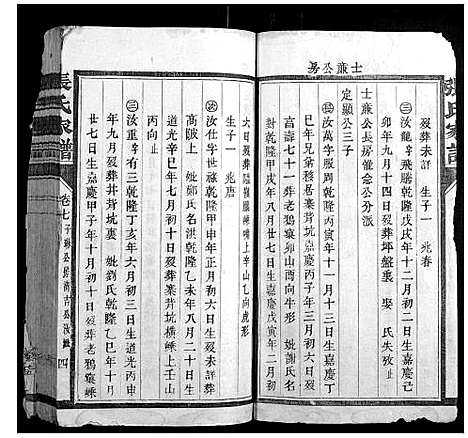 張氏家譜
士蔗公房
歿葬未詳　生子一　兆春
三汝龍字飛騰乾隆戊戌年十二月初二日生嘉慶己
卯年九月十四日歿葬坪盤裏　娶　氏失攷止
士蔗公長房僅僉公分派
定顯公三子
萬字服周乾隆丙寅年十一月十三日生嘉慶己
巳年兄弟移居寨背坑嘉慶丙子年三月初六日
富壽七十一葬老鴉窠卯山酉向牛形　妣謝氏名
對乾隆甲戌年八月廿七日生嘉慶戊寅年二月初
六日歿葬
生子一　兆唐
汝仕字世祿乾隆甲申年正月初二日未詳歿葬
高陂上　妣鄭氏名洪乾隆乙未年八月二十日生
道光辛巳年七月初十日歿葬寨背坑橫崠上壬山
丙向止
三汝重字有三乾隆丁亥年六月初三日生道光丙申
年九月歿葬井背坑裏　妣劉氏乾隆乙巳年十月
廿七日生嘉慶甲子年十月初十日歿葬老鴉窠崠
張氏家譜
卷七
四